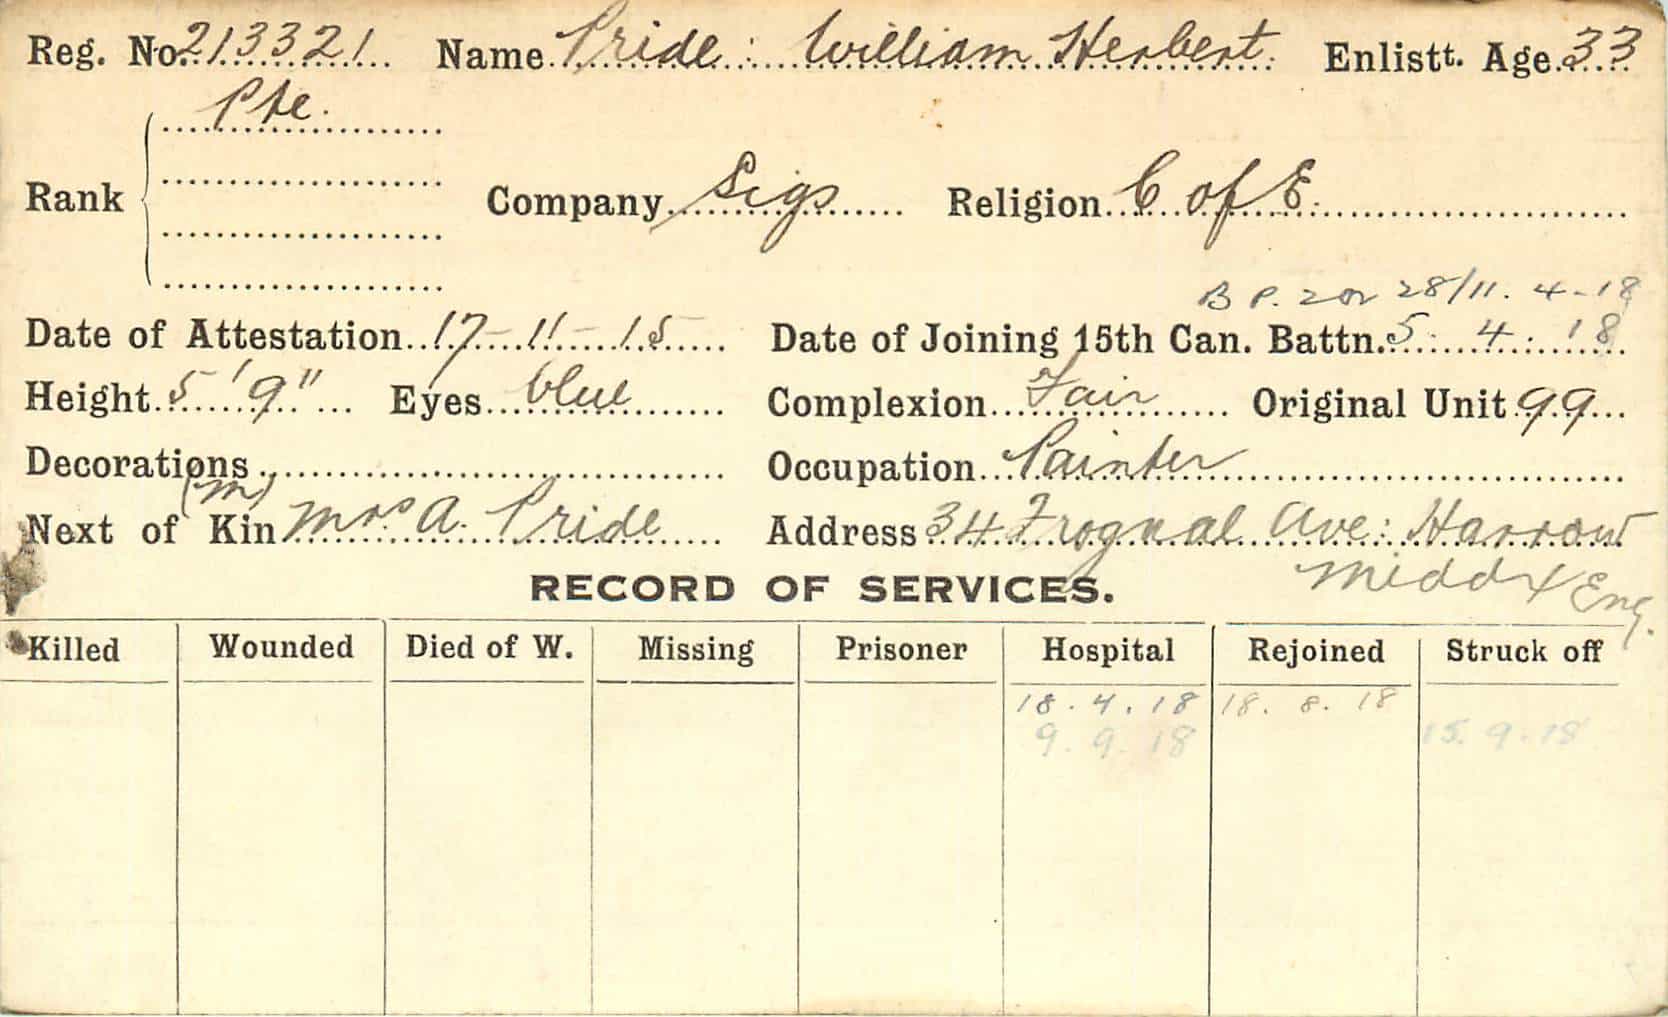 Reg. No. 213321 Name Pride: William Herbert. Enlistt. Age 33
Pte.
Rank Company Sigs Religion C of E.
B P. 2 or 28/11. 4-18
Date of Attestation 17-11-15 Date of Joining 15th Can. Battn. 5.4.18
Height 5'9" Eyes blue Complexion Fair Original Unit 99
Decorations Occupation Painter
(m)
Next of Kin Mrs A. Pride Address 34 Frognal Ave: Harrow
Middx Eng.
RECORD OF SERVICES.
Killed Wounded Died of W. Missing Prisoner Hospital Rejoined Struck off
18.4.18 18.8.18
9.9.18 15.9.18